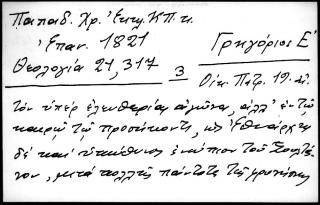 Παπαδ. Χρ. Ἐκκλ. Κ.Π. κ.
Ἐπαν. 1821
Γρηγόριος Ε'
Θεολογία 21, 317
3
Οἰκ. Πατρ. 19. αἰ.
τὸν ὑπὲρ ἐλευθερίας ἀγῶνα, ἀλλ' ἐν τῷ
καιρῷ τῷ προσήκοντι, ὡς Ἐθνάρχης
δὲ καὶ ὑπεύθυνος ἐνώπιον τοῦ Σουλτά
νου, μετὰ πολλῆς πάντοτε τῆς φρονήσεως